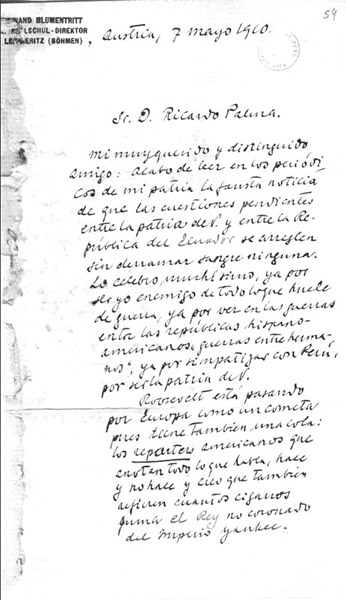 59
FERDINAND BLUMENTRITT
SCHUL-DIREKTOR
LEITMERITZ (BÖHMEN)
, Austria, 7 mayo 1910.
Sr. D. Ricardo Palma.
Mi muy querido y distinguido
amigo: Acabo de leer en los periódi
cos de mi patria la fausta noticia
de que las cuestiones pendientes
entre la patria de V. y entre la Re-
pública del Ecuador se arreglen
sin derramar sangre ninguna.
Lo celebro muchísimo, ya por
ser yo enemigo de todo lo que huele
de guerra, ya por ver en las guerras
entre las repúblicas hispano-
americanas "guerras entre herma-
nos", ya por simpatizar con Perú,
por ser la patria de V.
Roosevelt está pasando
por Europa como un cometa
pues tiene también una cola:
los reporters americanos que
anotan todo lo que habla, hace
y no hace y creo que también
cuantos cigarros
fuma el Rey no coronado
del Imperio yankee.